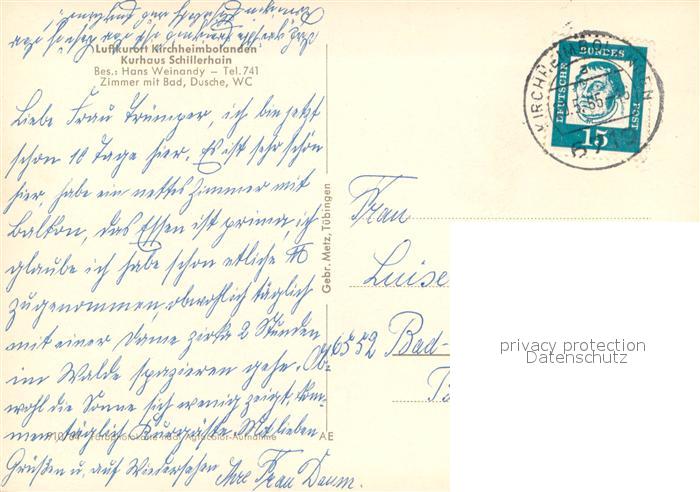 Luftkurort Kirchheimbolanden
Kurhaus Schillerhain
Bes.: Hans Weinandy – Tel. 741
Zimmer mit Bad, Dusche, WC
Liebe Frau Trümper, ich bin jetzt
schon 10 Tage hier. Es ist sehr schön
hier, habe ein nettes Zimmer mit
Balkon, das Essen ist prima, ich
glaube ich habe schon etliche
zugenommen, obwohl ich täglich
mit einer Dame zirka 2 Stunden
im Walde spazieren gehe. Ob-
wohl die Sonne sich wenig zeigt, kom-
men täglich Kurgäste. Mit lieben
Grüßen u. auf Wiedersehen Ihre Frau Daum.
Farbphotokarte nach Agfacolor-Aufnahme
AE
Gebr. Metz, Tübingen
DEUTSCHE
BUNDES
POST
15
KIRCHHEIMBOLANDEN
Frau
Luise
6552 Bad-
privacy protection
Datenschutz